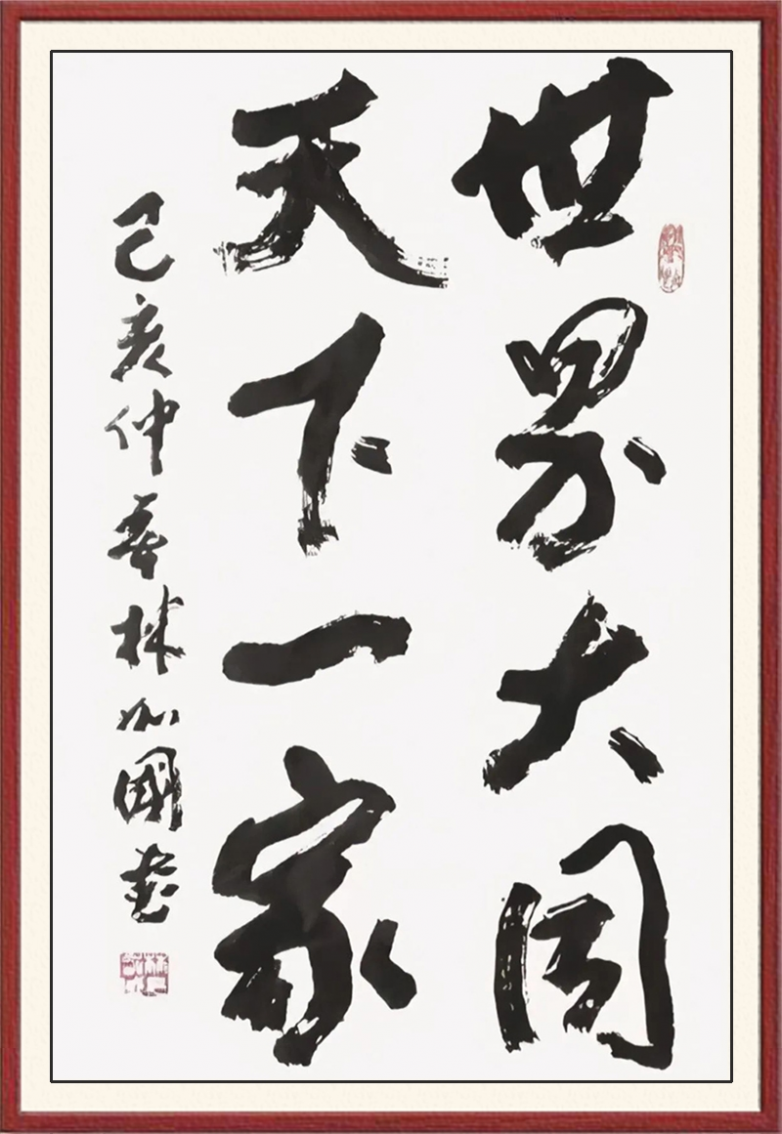 世界大同
天下一家
己亥仲春林加國書